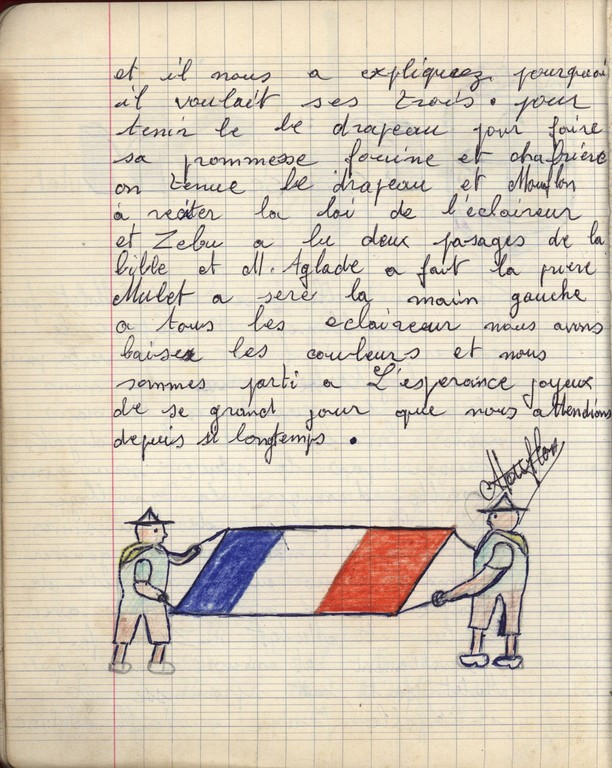 et il nous a expliquez pourquoi
il voulait ses trois. pour
tenir le le drapeau pour faire
sa prommesse fouine et chafrière
on tenue le drapeau et Mouflon
à reciter la loi de l'éclaireur
et Zebu a lu deux pasages de la
bible et M. Aglade a fait la priere
Mulet a seré la main gauche
a tous les eclaireur nous avons
baiser les couleurs et nous
sommes parti a L'esperance joyeux
de se grand jour que nous attendions
depuis si longtemps.
Mouflon